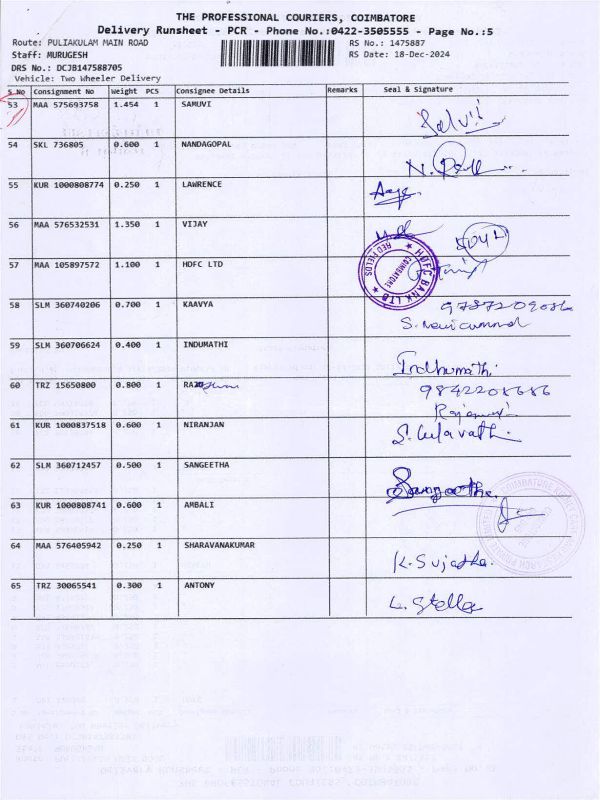 THE PROFESSIONAL COURIERS, COIMBATORE
Delivery Runsheet - PCR - Phone No.:0422-3505555 - Page No.:5
Route: PULIAKULAM MAIN ROAD RS No.: 1475887
Staff: MURUGESH RS Date: 18-Dec-2024
DRS No.: DCJB147588705
Vehicle: Two Wheeler Delivery
S.No Consignment No Weight PCS Consignee Details Remarks Seal & Signature
53 MAA 575693758 1.454 1 SAMUVI Selvi
54 SKL 736805 0.600 1 NANDAGOPAL
55 KUR 1000808774 0.250 1 LAWRENCE
56 MAA 576532531 1.350 1 VIJAY
57 MAA 105897572 1.100 1 HDFC LTD
HDFC BANK LTD
RED FIELDS
COIMBATORE
58 SLM 360740206 0.700 1 KAAVYA 9787209086
59 SLM 360706624 0.400 1 INDUMATHI Indhumathi
60 TRZ 15650800 0.800 1 9842208686
61 KUR 1000837518 0.600 1 NIRANJAN
62 SLM 360712457 0.500 1 SANGEETHA Sangeetha
63 KUR 1000808741 0.600 1 AMBALI
64 MAA 576405942 0.250 1 SHARAVANAKUMAR K. Sujatha
65 TRZ 30065541 0.300 1 ANTONY L. Stella